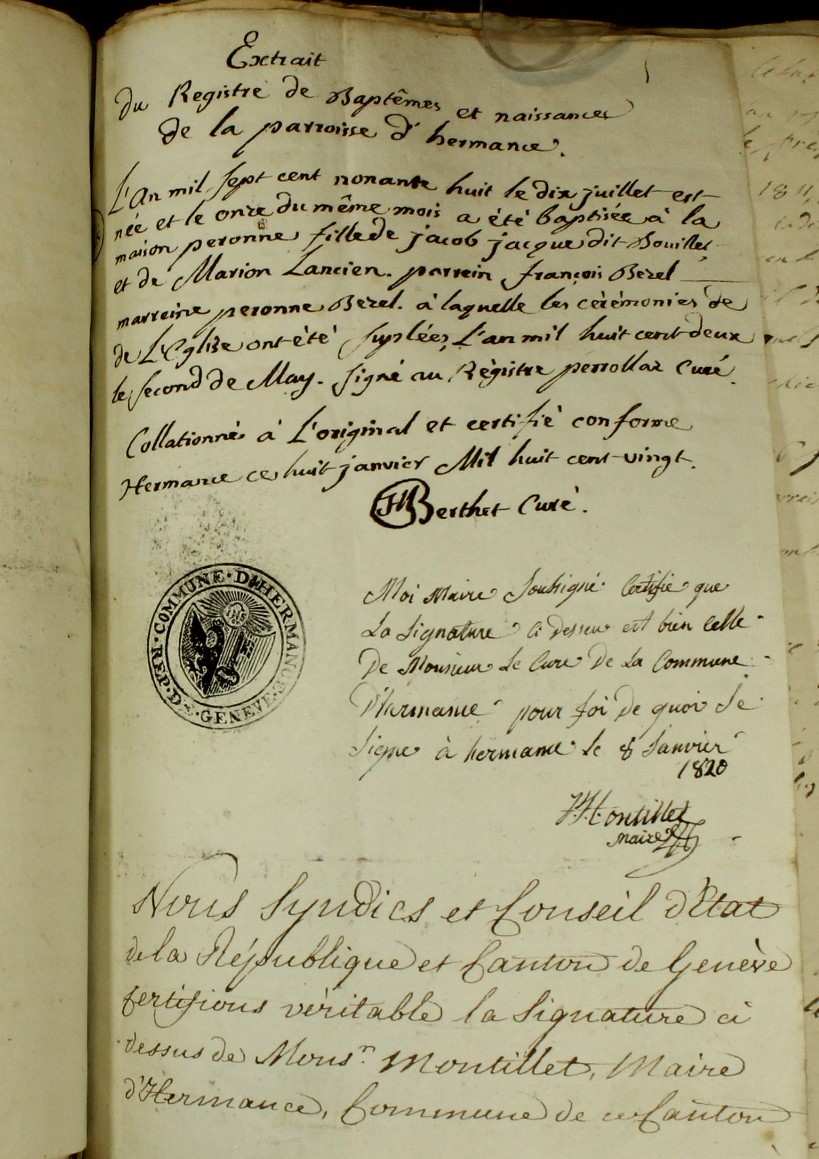 Extrait
Du Registre de Baptêmes et naissances
de la parroisse d'hermance.
L'An mil sept cent nonante huit le dix juillet est
née et le onze du même mois a été baptisée à la
maison peronne fille de jacob jacque dit Bouillet
et de Marion Lancien. parrein françois Bezel
marreine peronne Bezel. à laquelle les cérémonies de
de L'Eglise ont été suplées L'an mil huit cent deux
le second de May. signé au Régistre perrollaz Curé.
Collationnés à L'original et certifié conforme
Hermance ce huit janvier Mil huit cent vingt.
Berthet Curé.
COMMUNE D'HERMANCE RÉP. DE GENEVE
Moi Maire Soussigné Certifie que
La Signature ci dessus est bien celle
De Monsieur Le Cure De La Commune
D'hermance pour foi De quoi Je
Signe à hermance le 8 Janvier
1820
Montillet
Maire
Nous Syndics et Conseil d'Etat
de la République et Canton de Genève
Certifions véritable la Signature ci
dessus de Monsr. Montillet, Maire
d'Hermance, Commune de ce Canton